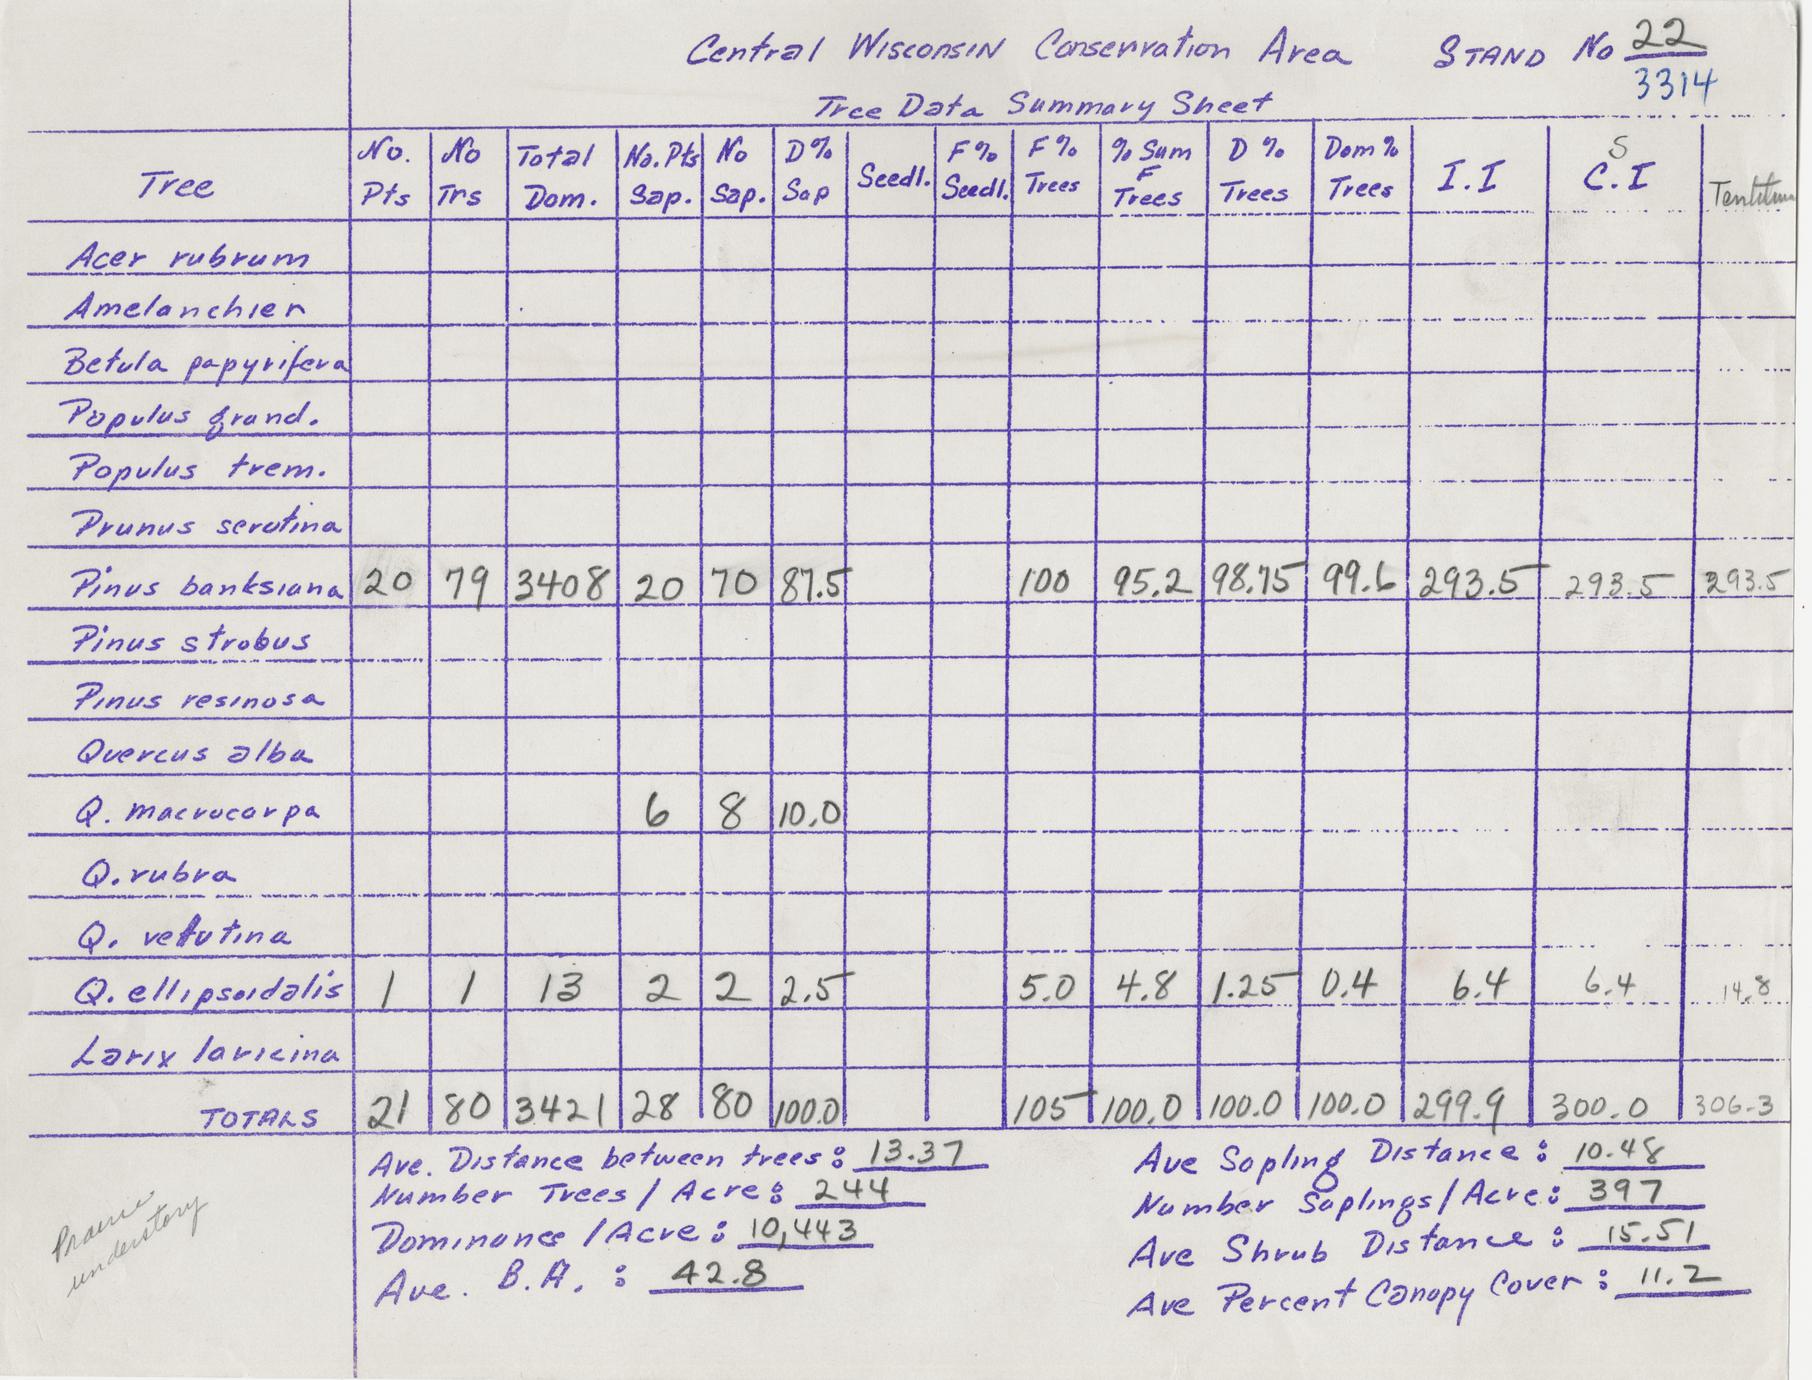 Central Wisconsin Conservation Area STAND No 22
3314
Tree Data Summary Sheet
Tree No. Pts No Trs Total Dom. No. Pts Sap. No Sap. D% Sap Seedl. F% Seedl. F% Trees % Sum F Trees D % Trees Dom % Trees I.I S C.I
Acer rubrum
Amelanchier
Betula papyrifera
Populus grand.
Populus trem.
Prunus serotina
Pinus banksiana 20 79 3408 20 70 87.5 100 95.2 98.75 99.6 293.5 293.5 293.5
Pinus strobus
Pinus resinosa
Quercus alba
Q. macrocarpa 6 8 10.0
Q. rubra
Q. velutina
Q. ellipsoidalis 1 1 13 2 2 2.5 5.0 4.8 1.25 0.4 6.4 6.4 14.8
Larix laricina
TOTALS 21 80 3421 28 80 100.0 105 100.0 100.0 100.0 299.9 300.0 306-3
Ave. Distance between trees: 13.37
Number Trees / Acre: 244
Dominance / Acre: 10,443
Ave. B.A. : 42.8
Ave Sapling Distance: 10.48
Number Saplings / Acre: 397
Ave Shrub Distance: 15.51
Ave Percent Canopy Cover: 11.2
Prairie
understory